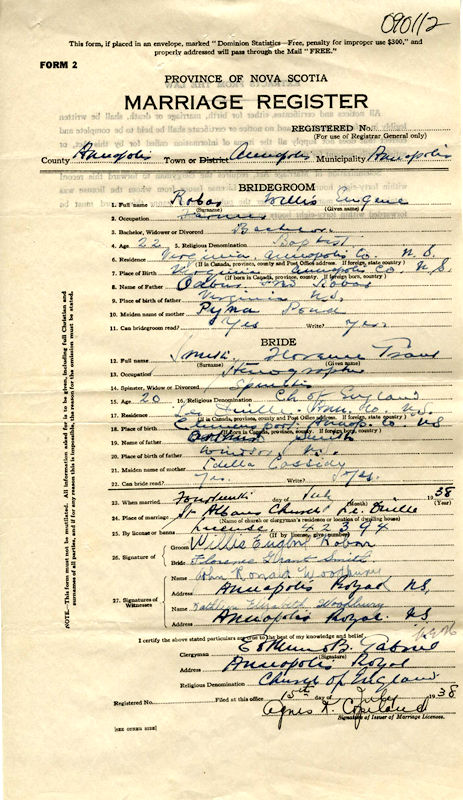 090112
This form, if placed in an envelope, marked "Dominion Statistics—Free, penalty for improper use $300," and
properly addressed will pass through the Mail "FREE."
FORM 2
PROVINCE OF NOVA SCOTIA
MARRIAGE REGISTER
REGISTERED No.
(For use of Registrar General only)
County Annapolis Town or District Annapolis Municipality Annapolis
BRIDEGROOM
1. Full name Rabar Willis Eugene
(Surname) (Given name)
2. Occupation Farmer
3. Bachelor, Widower or Divorced Bachelor
4. Age 22 5. Religious Denomination Baptist
6. Residence Virginia Annapolis Co. N.S.
(If in Canada, province, county and Post Office address. If foreign, state country)
7. Place of Birth Virginia Annapolis Co. N.S.
(If born in Canada, province, county. If foreign born, country)
8. Name of Father Rabar
9. Place of birth of father Virginia N.S.
10. Maiden name of mother
11. Can bridegroom read? Yes Write? Yes
BRIDE
12. Full name Smith Florence Grant
(Surname) (Given name)
13. Occupation Stenographer
14. Spinster, Widow or Divorced Spinster
15. Age 20 16. Religious Denomination Ch of England
17. Residence Le Quille Ann. Co. N.S.
(If in Canada, province, county and Post Office address. If foreign, state country)
18. Place of birth Annap. Co. NS
(If born in Canada, province, county. If foreign born, country)
19. Name of father Smith
20. Place of birth of father Windsor N.S.
21. Maiden name of mother Cassidy
22. Can bride read? Yes. Yes.
23. When married Fourteenth day of July 1938
(Month) (Year)
24. Place of marriage St Albans Church Le Quille
(Name of church or clergyman's residence or location of dwelling house)
25. By license or banns License, 42394
(If by license, give number)
26. Signature of
Groom Willis Eugene Rabar
Bride Florence Grant Smith
27. Signatures of Witnesses
Name John Ronald Woodbury
Address Annapolis Royal NS,
Name Kathleen Elizabeth Woodbury
Address Annapolis Royal. NS
I certify the above stated particulars are true to the best of my knowledge and belief
Clergyman
(Signature)
Address Annapolis Royal
Religious Denomination Church of England
Registered No. Filed at this office 15th day of July 1938
Agnes K. Copeland
Signature of Issuer of Marriage Licenses.
[SEE OTHER SIDE]
NOTE.—This form must not be mutilated. All information asked for is to be given, including full Christian and
Surname of all parties, and if for any reason this is impossible, the reason for the omission must be stated.